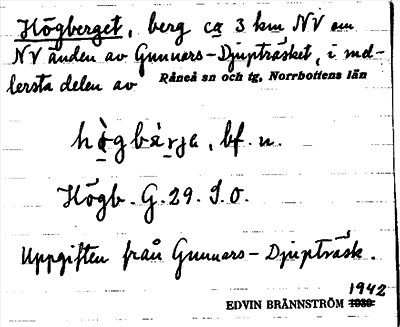 Högberget, berg ca 3 km NV om
NV änden av Gunnars-Djupträsket, i md-
lersta delen av Råneå sn och tg, Norrbottens län
hö̀gbàrja, bf. n.
Högb. G. 29. S.O.
Uppgiften från Gunnars-Djupträsk.
1942
EDVIN BRÄNNSTRÖM 1939